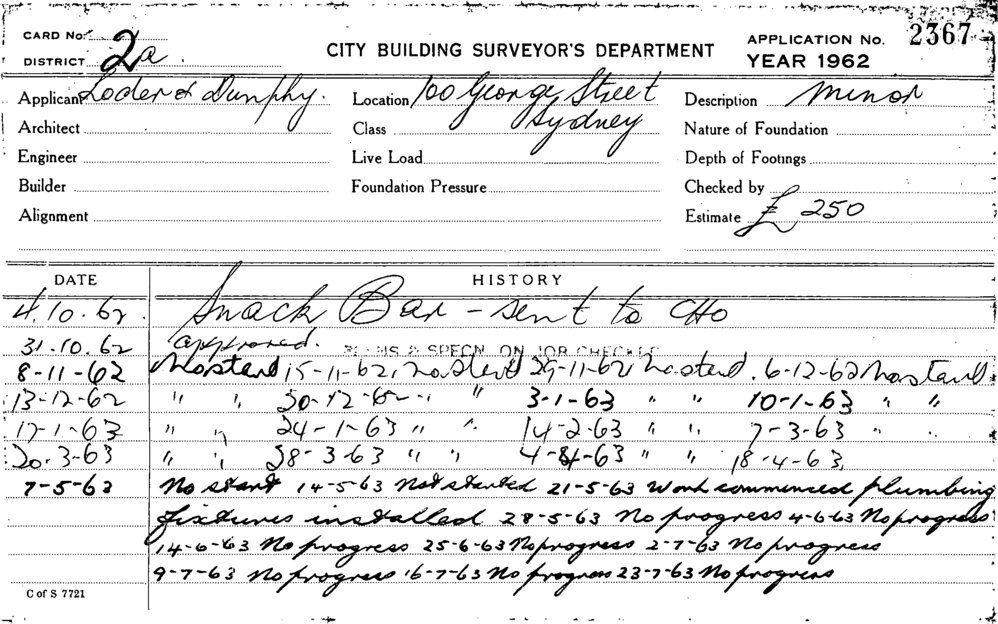 CARD No. 2a
DISTRICT
CITY BUILDING SURVEYOR'S DEPARTMENT
APPLICATION No. 2367
YEAR 1962
Applicant Loder & Dunphy. Location 100 George Street Description Minor
Architect Class Sydney Nature of Foundation
Engineer Live Load Depth of Footings
Builder Foundation Pressure Checked by
Alignment Estimate £ 250
DATE HISTORY
4.10.62. Snack Bar - sent to CHO
31.10.62 approved. PLANS & SPECN. ON JOB CHECKED
8-11-62 No start 15-11-62, no start 29-11-62, no start. 6-12-62 no start
13-12-62 " " 20-12-62 " " 3-1-63 " " 10-1-63 " "
17-1-63 " " 24-1-63 " " 14-2-63 " " 7-3-63 " "
20.3-63 " " 28-3-63 " " 4-4-63 " " 18-4-63
7-5-63 No start 14-5-63 Not started 21-5-63 Work commenced plumbing
fixtures installed 28-5-63 No progress 4-6-63 No progress
14-6-63 No progress 25-6-63 No progress 2-7-63 No progress
9-7-63 No progress 16-7-63 No progress 23-7-63 No progress
C of S 7721